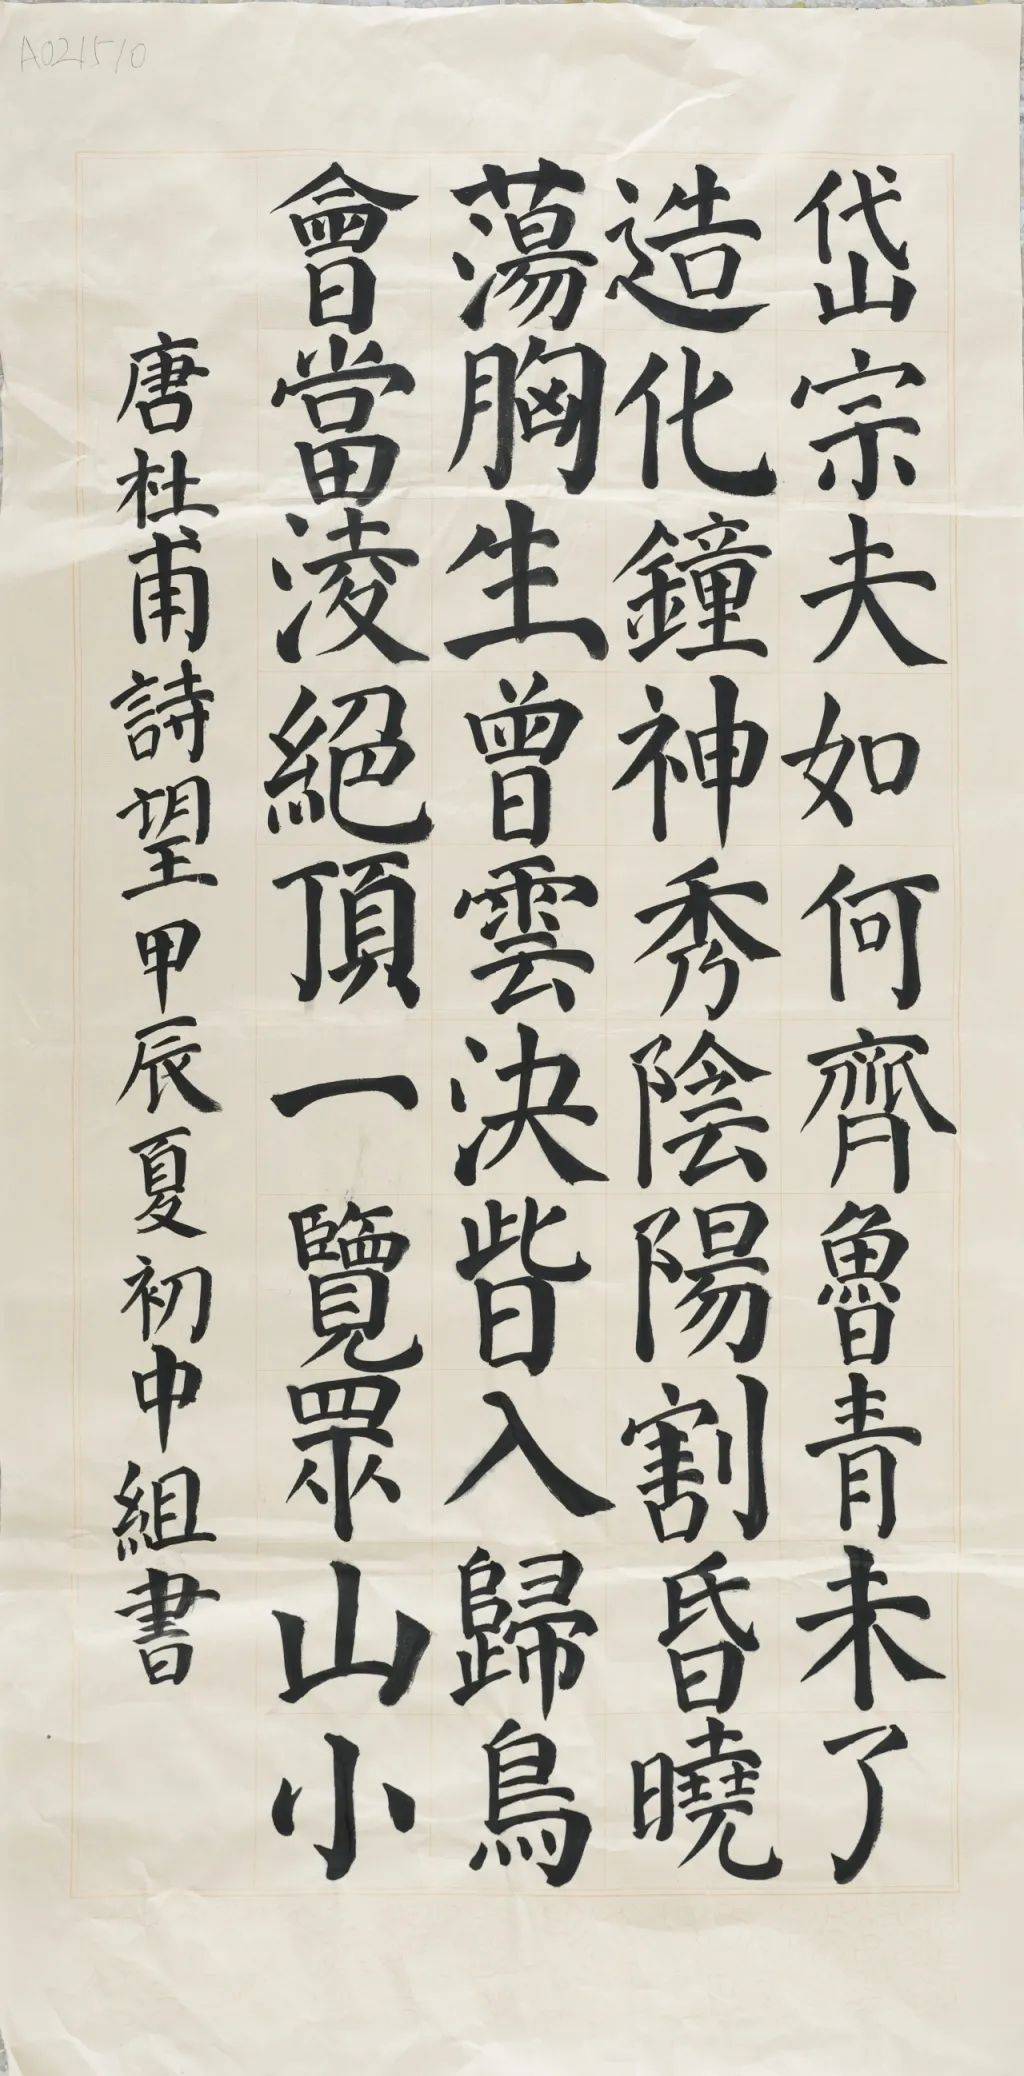 A021510
岱宗夫如何齊魯青未了
造化鐘神秀陰陽割昏曉
蕩胸生曾雲決眥入歸鳥
會當淩絕頂一覽眾山小
唐杜甫詩望甲辰夏初中組書